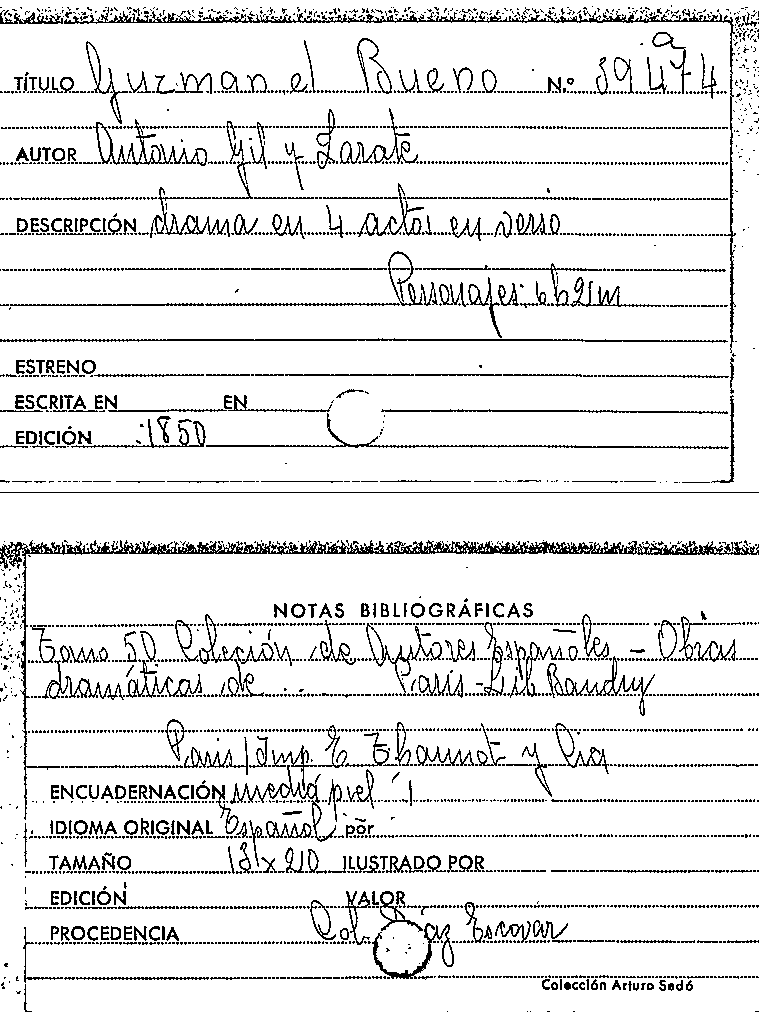 TÍTULO Guzman el Bueno N.º 39474
a
AUTOR Antonio Gil y Zarate
DESCRIPCIÓN drama en 4 actos en verso
Personajes: 6 h 2 m
ESTRENO
ESCRITA EN EN
EDICIÓN 1850
NOTAS BIBLIOGRÁFICAS
Tomo 50 Coleción de Autores Españoles - Obras
dramáticas de ... Paris - Lib Baudry
Paris / Imp. E Thaunot y Cia
ENCUADERNACIÓN media piel
IDIOMA ORIGINAL Español por
TAMAÑO 131 x 210 ILUSTRADO POR
EDICIÓN VALOR
PROCEDENCIA Col. Díaz Escovar
Colección Arturo Sedó